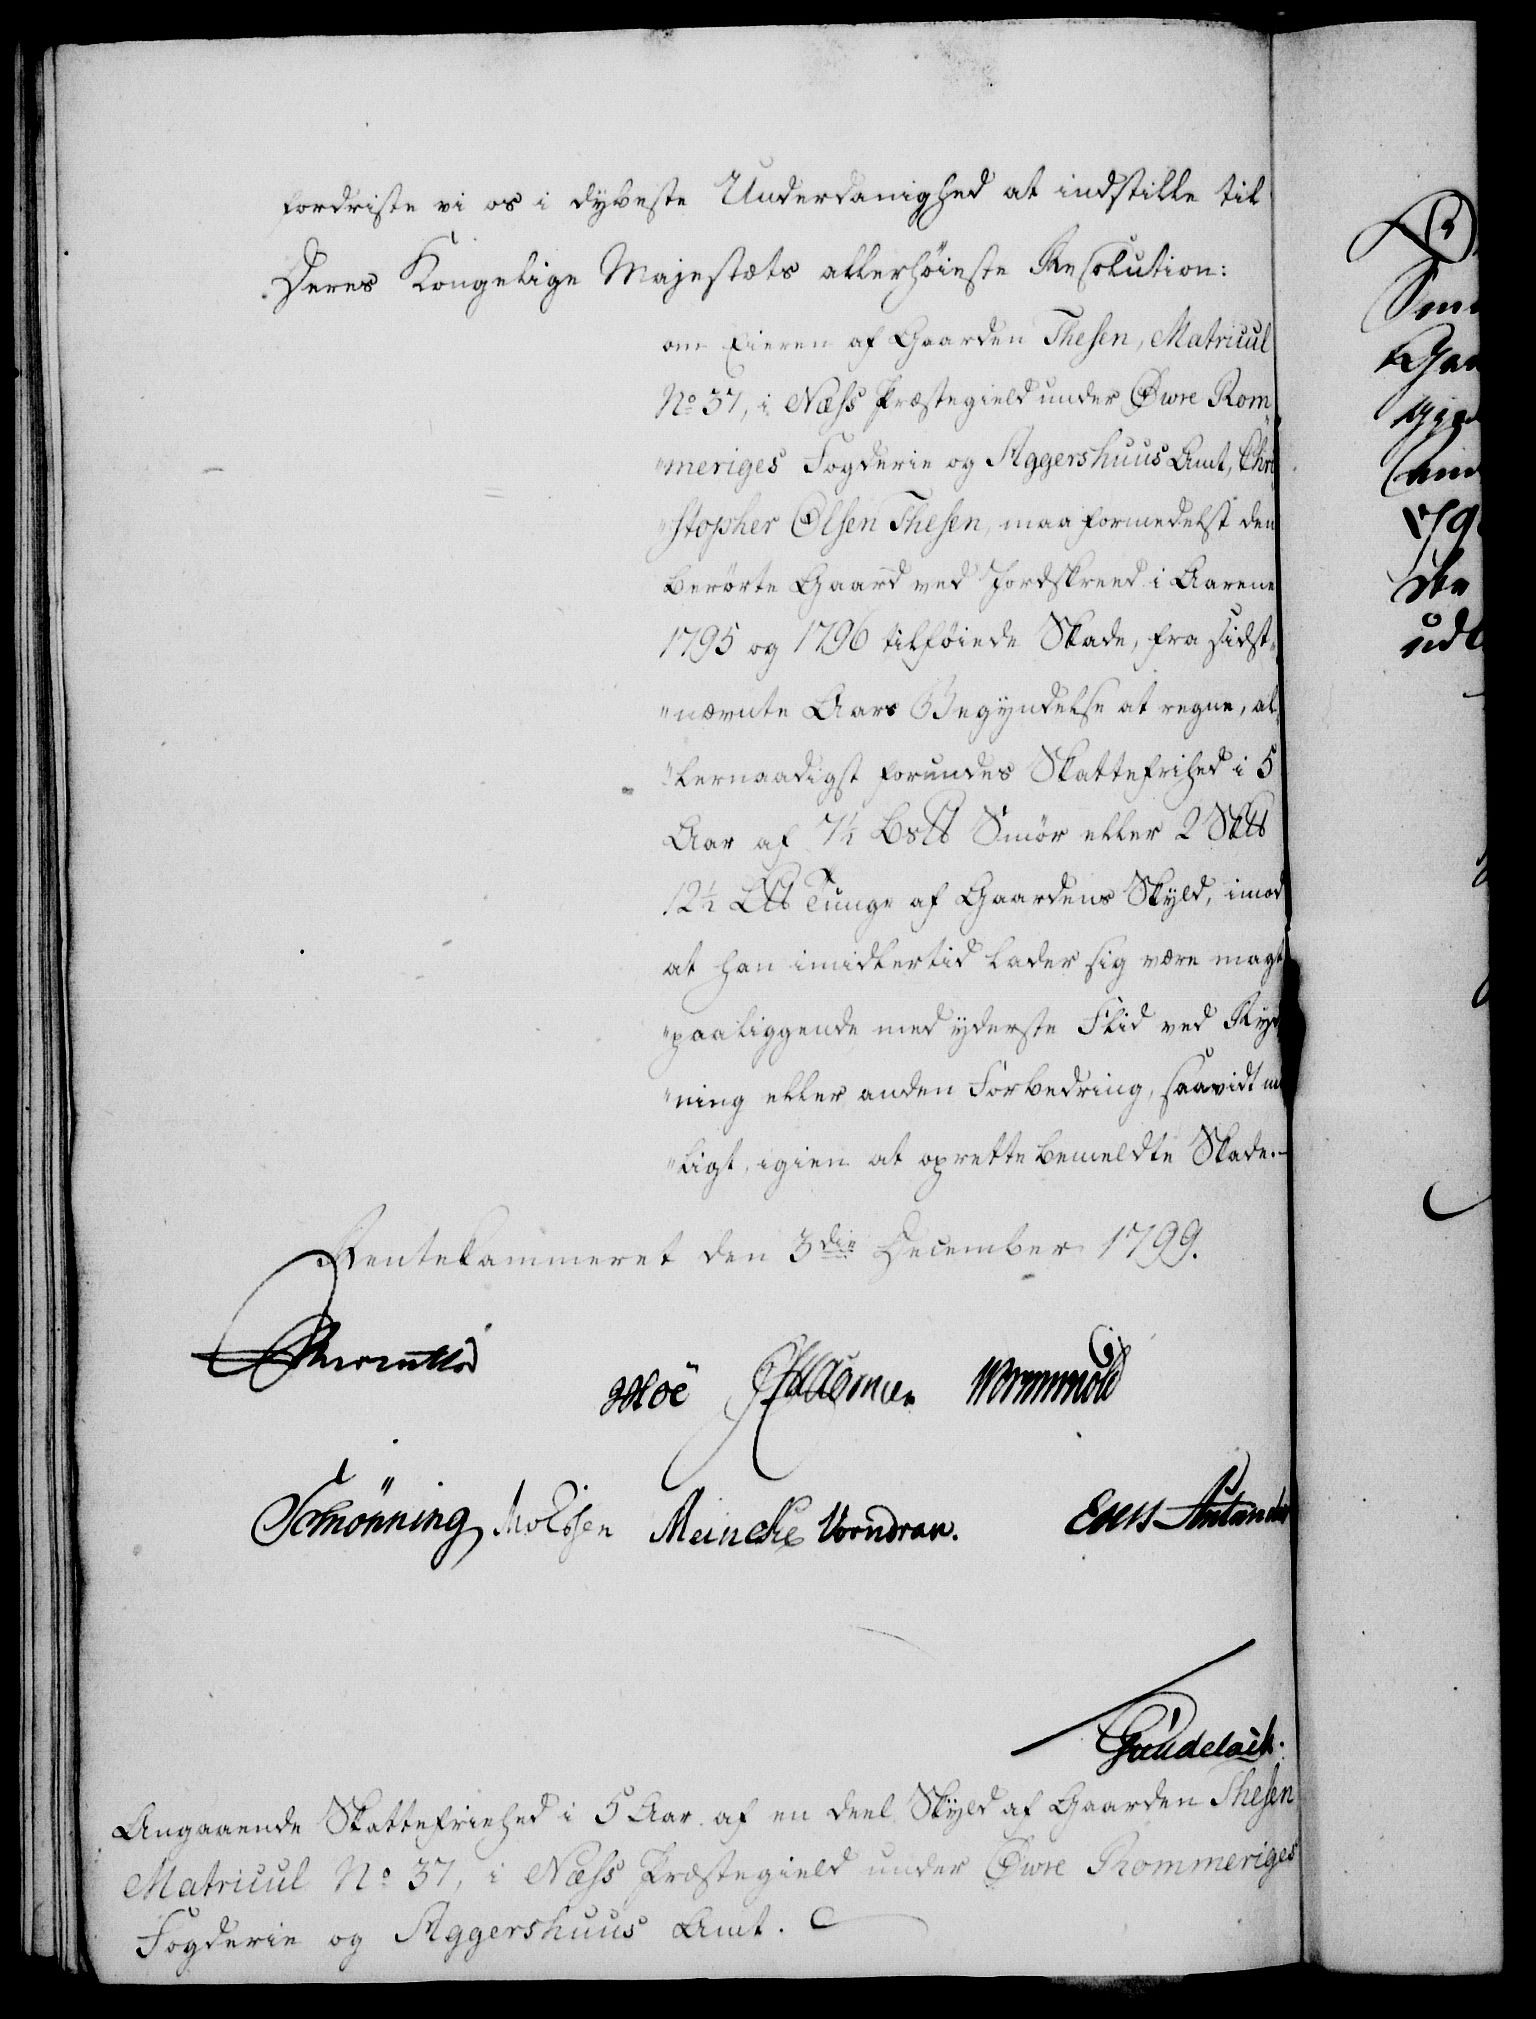 fordriste vi os i dybeste Underdanighed at indstille til
Deres Kongelige Majestæts allerhöieste Resolution:
om Eieren af Gaarden Thesen, Matricul
No 37, i Næss Præstegield under Øwre Rom„
„meriges Fogderie og Aggershuus Amt, Chri„
„stopher Olsen Thesen, maa formedelst den
berörte Gaard ved Jordskreed i Aarene
1795 og 1796 tilföiede Skade, fra sidst„
„nævnte Aars Begyndelse at regne, al„
„lernaadigst forundes Skattefrihed i 5
Aar af 7½ Smör eller 2
12½ Tunge af Gaardens Skyld, imod
at han imidlertid lader sig være magt
„paaliggende med yderste Flid ved Ryd„
„ning eller anden Forbedring, saavidt mu
„ligt, igien at oprette bemeldte Skade.
Rentekammeret den 3die December 1799.
Reventlow
Hoë Wormskiold
Schönning Meincke Vorndran.
Angaaende Skattefriehed i 5 Aar af en deel Skyld af Gaarden Thesen
Matricul No 37, i Næss Præstegield under Øwre Rommeriges
Fogderie og Aggershuus Amt.